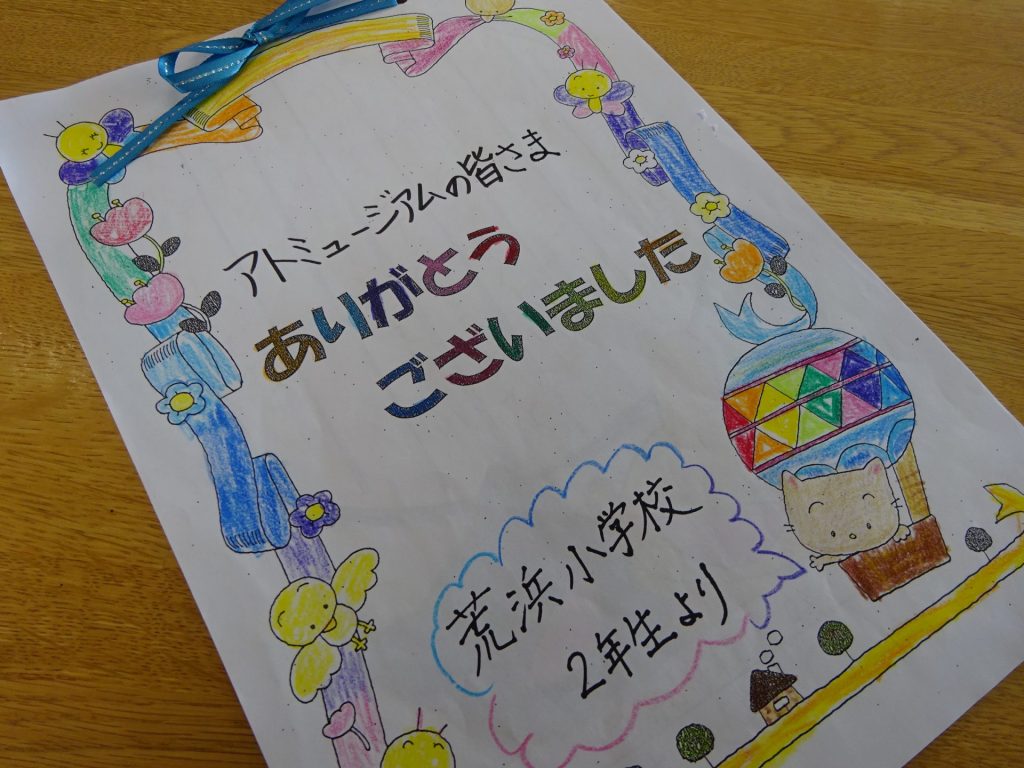 アトミュージアムの皆さま
ありがとう
ございました
荒浜小学校
2年生より